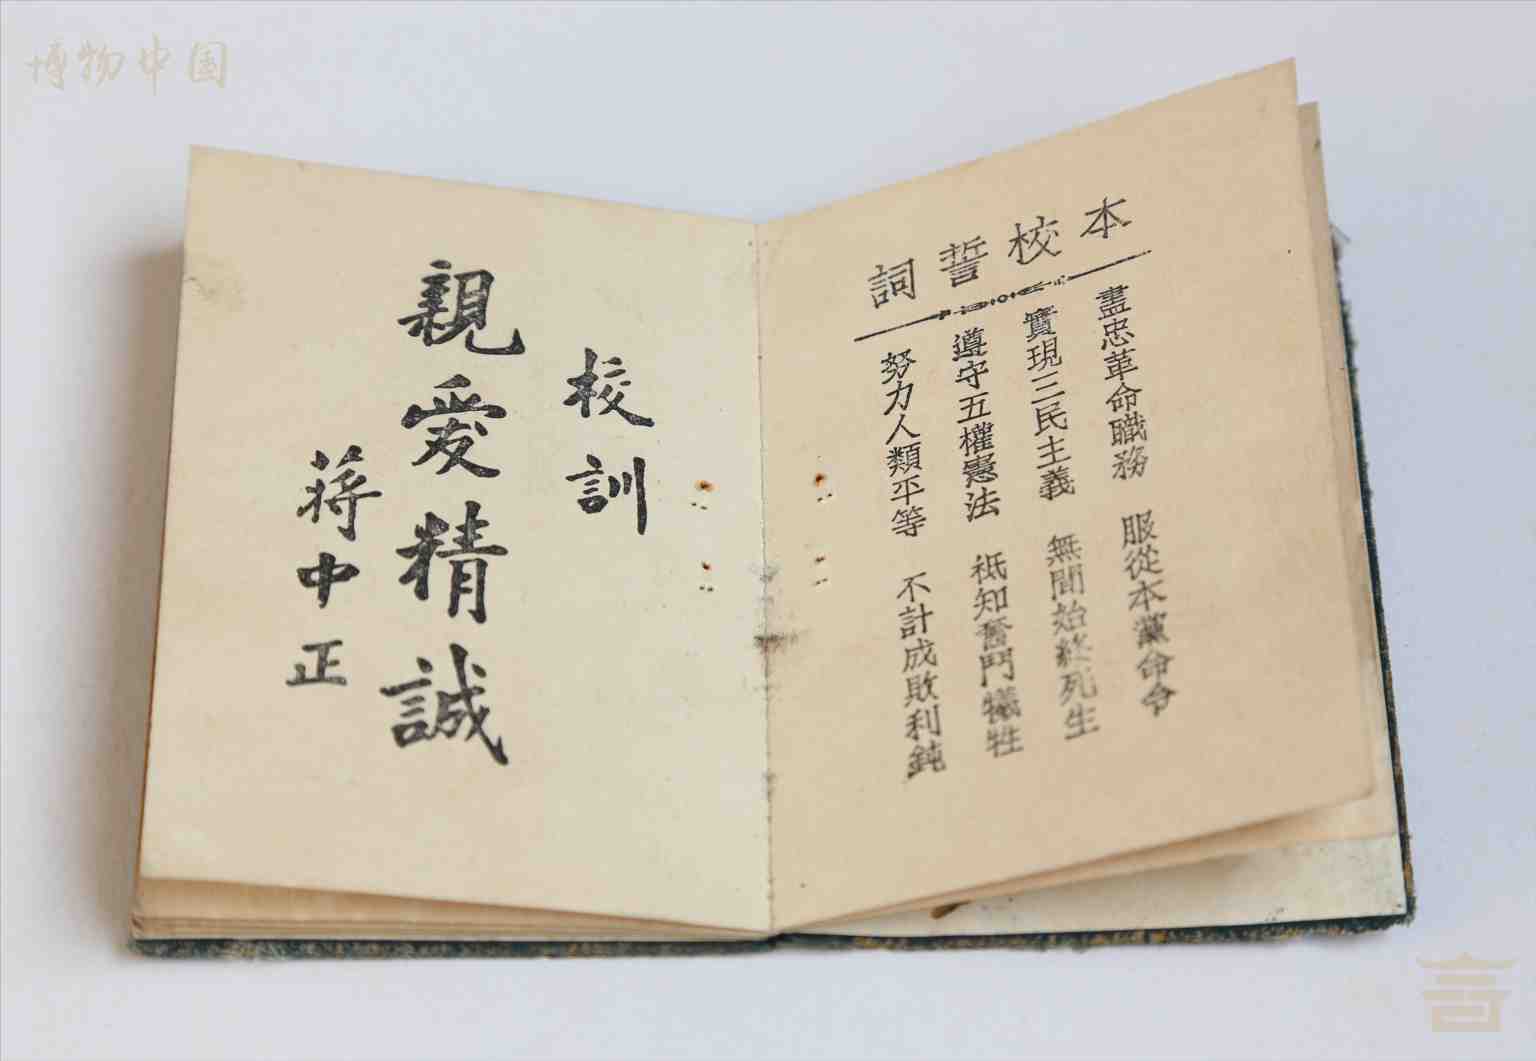 博物中国
本校誓詞
盡忠革命職務 服從本黨命令
實現三民主義 無間始終死生
遵守五權憲法 祗知奮鬥犧牲
努力人類平等 不計成敗利鈍
校訓
親愛精誠
蔣中正